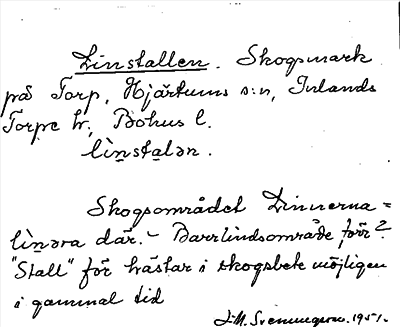 Linstallen. Skogsmark
på Torp, Hjärtums s:n, Inlands
Torpe h., Bohus l.
li̱nsta̱lən.
Skogsområdet Linnerna =
li̱nəra där. - Barrlindsområde förr?
"Stall" för hästar i skogsbete möjligen
i gammal tid
J.M. Svenningson. 1951.